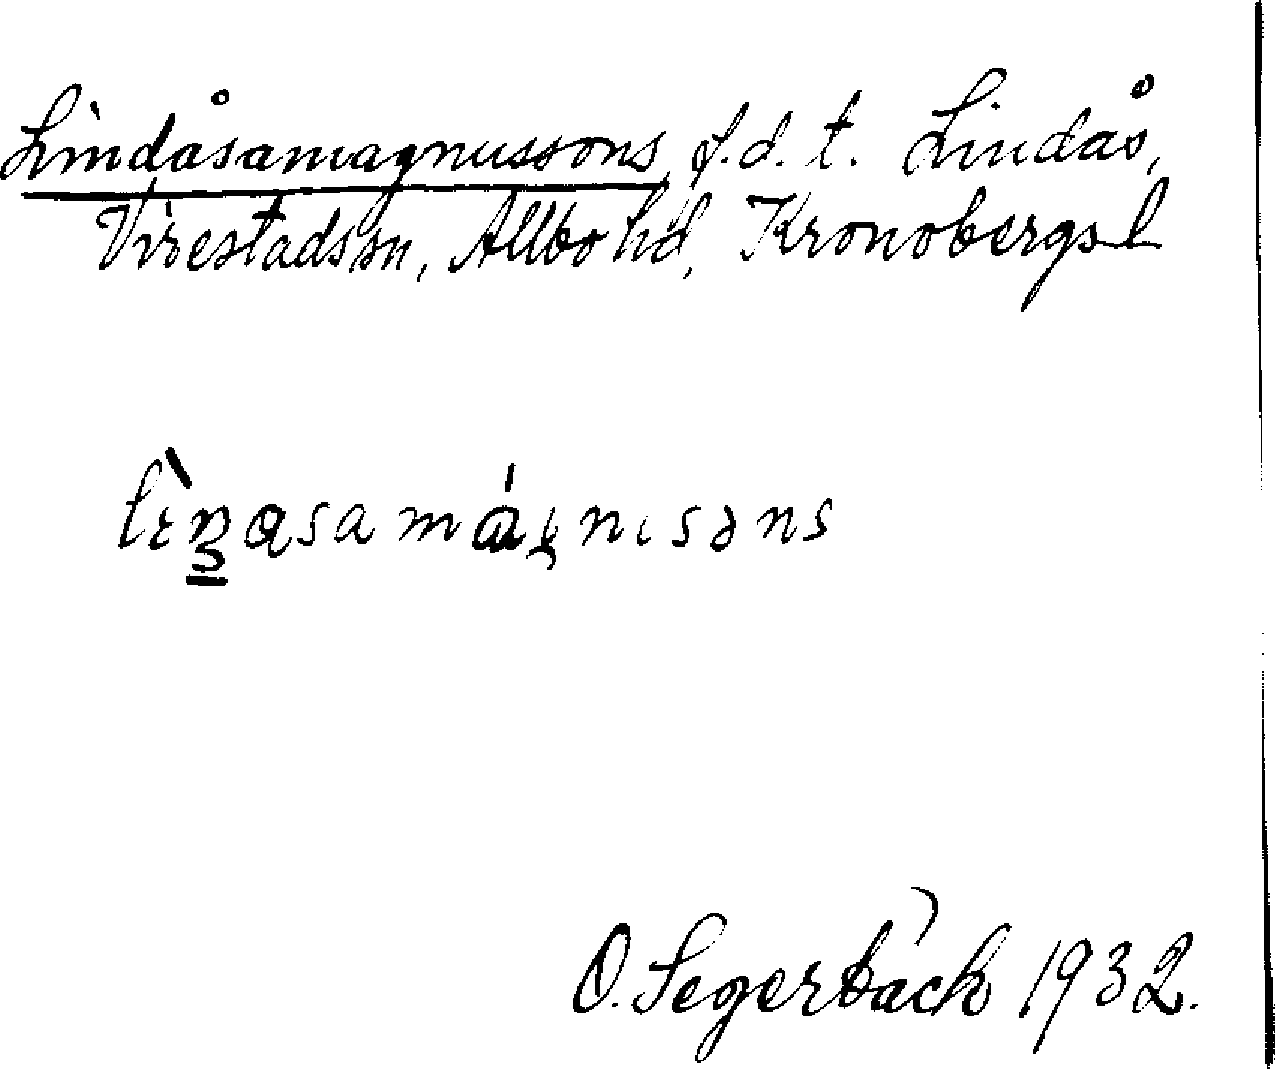 Lindåsamagnussons, f.d.t. Lindås,
Virestads sn, Allbo hd, Kronobergs l
O. Segerbäck 1932.